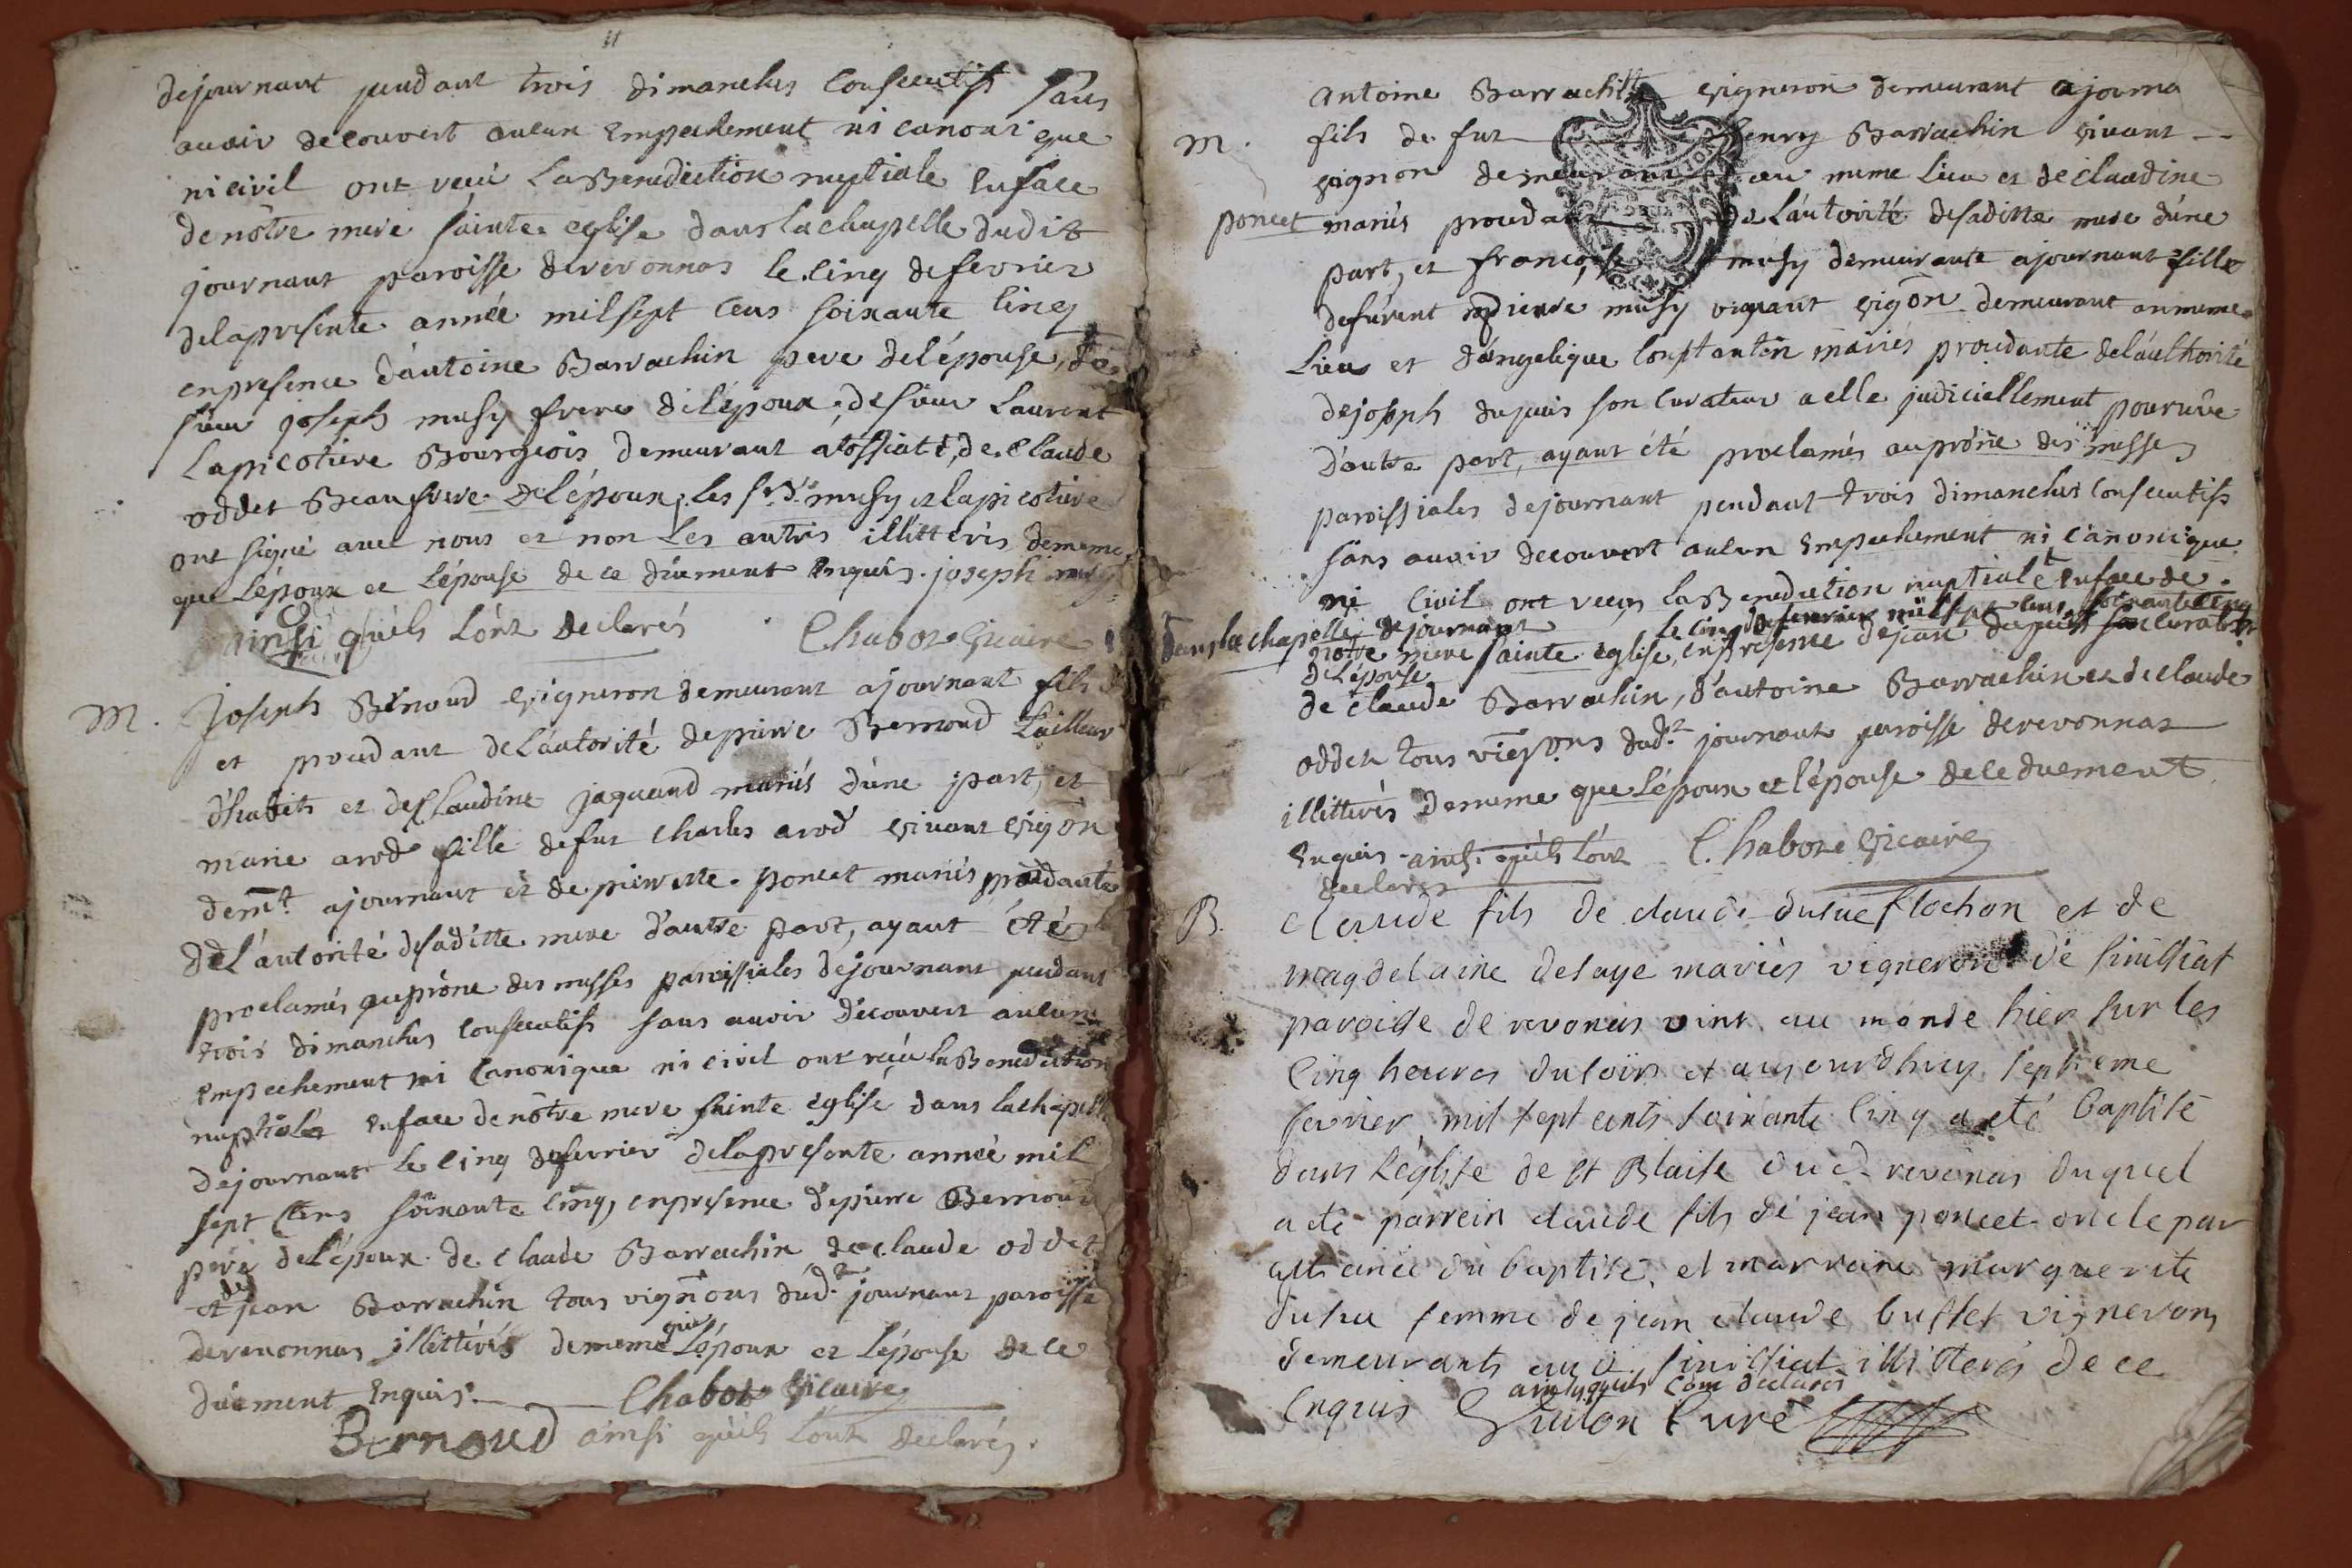 dejournant pendant trois dimanches consecutifs sans
avoir decouvert aucun empechement ni canonique
ni civil ont reçû la Benediction nuptiale en face
de nôtre mere sainte eglise dans la chapelle dudit
journant paroisse de revonnas le cinq de fevrier
de la presente année mil sept cens soixante cinq
en presence d'antoine Barrachin pere de l'épouse, de
sieur joseph musy frere de l'époux, de sieur Laurent
Lapicotiere Bourgeois demeurant a tossiat, de Claude
oddet Beaufrere de l'époux, les srs musy et lapicotiere
ont signé avec nous et non les autres illitteres de meme
que l'époux et l'épouse de ce düement enquis. joseph musy
ainsi qu'ils l'ont declarés Chabot vicaire
M. Joseph Bernoud vigneron demeurant a journant fils
et procedant de l'autorité de pierre Bernoud tailleur
d'habits et de Claudine jaquand mariés d'une part, et
marie arod fille de fut charles arod vivant vigōn
demt. a journant et de pierrette poncet mariés procedante
de l'autorité de sa ditte mere d'autre part, ayant été
proclamés au prône des messes paroissiales de journant pendant
trois dimanches consecutifs sans avoir découvert aucun
empechement ni canonique ni civil ont reçû la Benediction
nuptiale en face de nôtre mere sainte église dans la chapelle
de journant le cinq de fevrier de la presente année mil
sept cens soixante cinq, en presence de pierre Bernoud
pere de l'époux de claude Barrachin de claude oddet
et de jean Barrachin tous vignōns dud. journant paroisse
de revonnas illittérés de meme que l'époux et l'épouse de ce
düement enquis. Chabot vicaire
Bernoud ainsi qu'ils l'ont declarés.
antoine Barrachin vigneron demeurant a journa
M. fils de fut henry Barrachin vivant
vignon demeurant au meme lieu et de claudine
poncet mariés procedant de l'autorité de sa ditte mere d'une
part, et françoise musy demeurante a journant fille
de furent pierre musy vivant vigōn demeurant au meme
lieu et d'angelique constantin mariés procedante de l'authorité
de joseph dupuis son curateur a elle judiciellement pourvûe
d'autre part, ayant été proclamés au prône des messes
paroissiales de journant pendant trois dimanches consecutifs
sans avoir decouvert aucun empechement ni canonique
ni civil ont reçus la Benediction nuptiale en face de
dans la chapelle de journant le cinq de fevrier mil sept cens soixante cinq
notre mere sainte eglise, en presence de jean dupuis son curateur
de l'épouse
de claude Barrachin, d'antoine Barrachin et de claude
oddet tous vignōns dudt journant paroisse de revonnas
illitterés de meme que l'époux et l'épouse de ce duement
enquis ainsi qu'ils l'ont Chabot vicaire
declarés
B. Claude fils de claude flochon et de
magdelaine delaye mariés vigneron de sinissiat
paroisse de revonas vint au monde hier sur les
cinq heures du soir et aujourdhuy septieme
fevrier mil sept cents soixante cinq a eté baptisé
dans l'église de st Blaise dud. revonas duquel
a eté parrein claude fils de jean poncet oncle par
alliance du baptisé et marraine marguerite
femme de jean claude buffet vignerons
demeurants aud. sinissiat illitterés de ce
ainsy qu'ils l'ont declarés
enquis curé